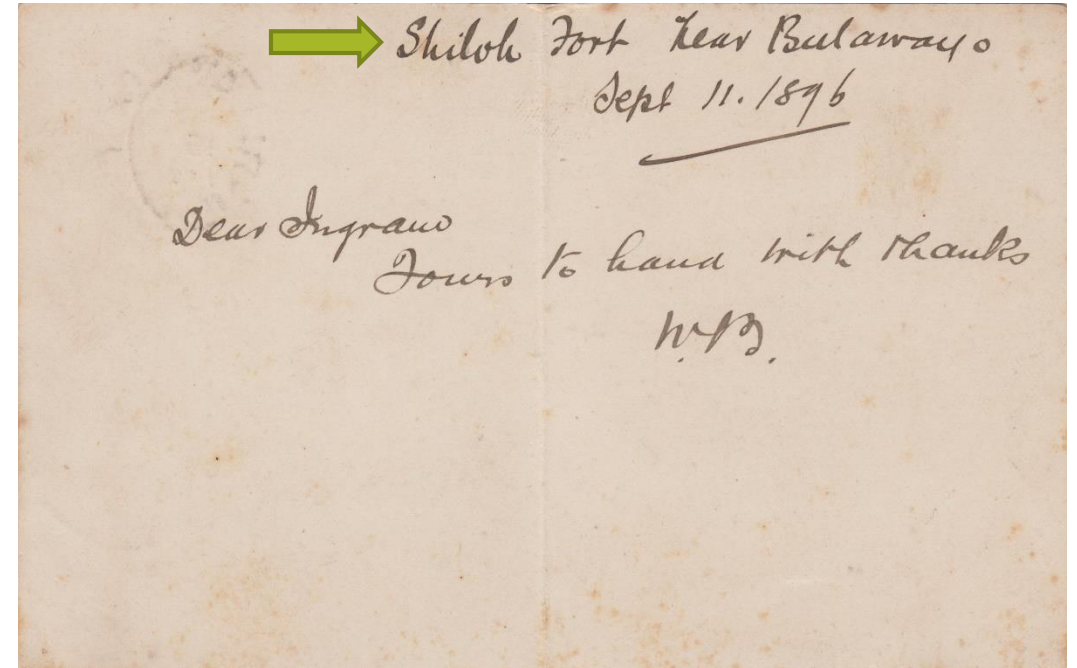 Shiloh Fort near Bulawayo
Sept 11. 1896
Dear Ingram
Yours to hand with thanks
W.B.